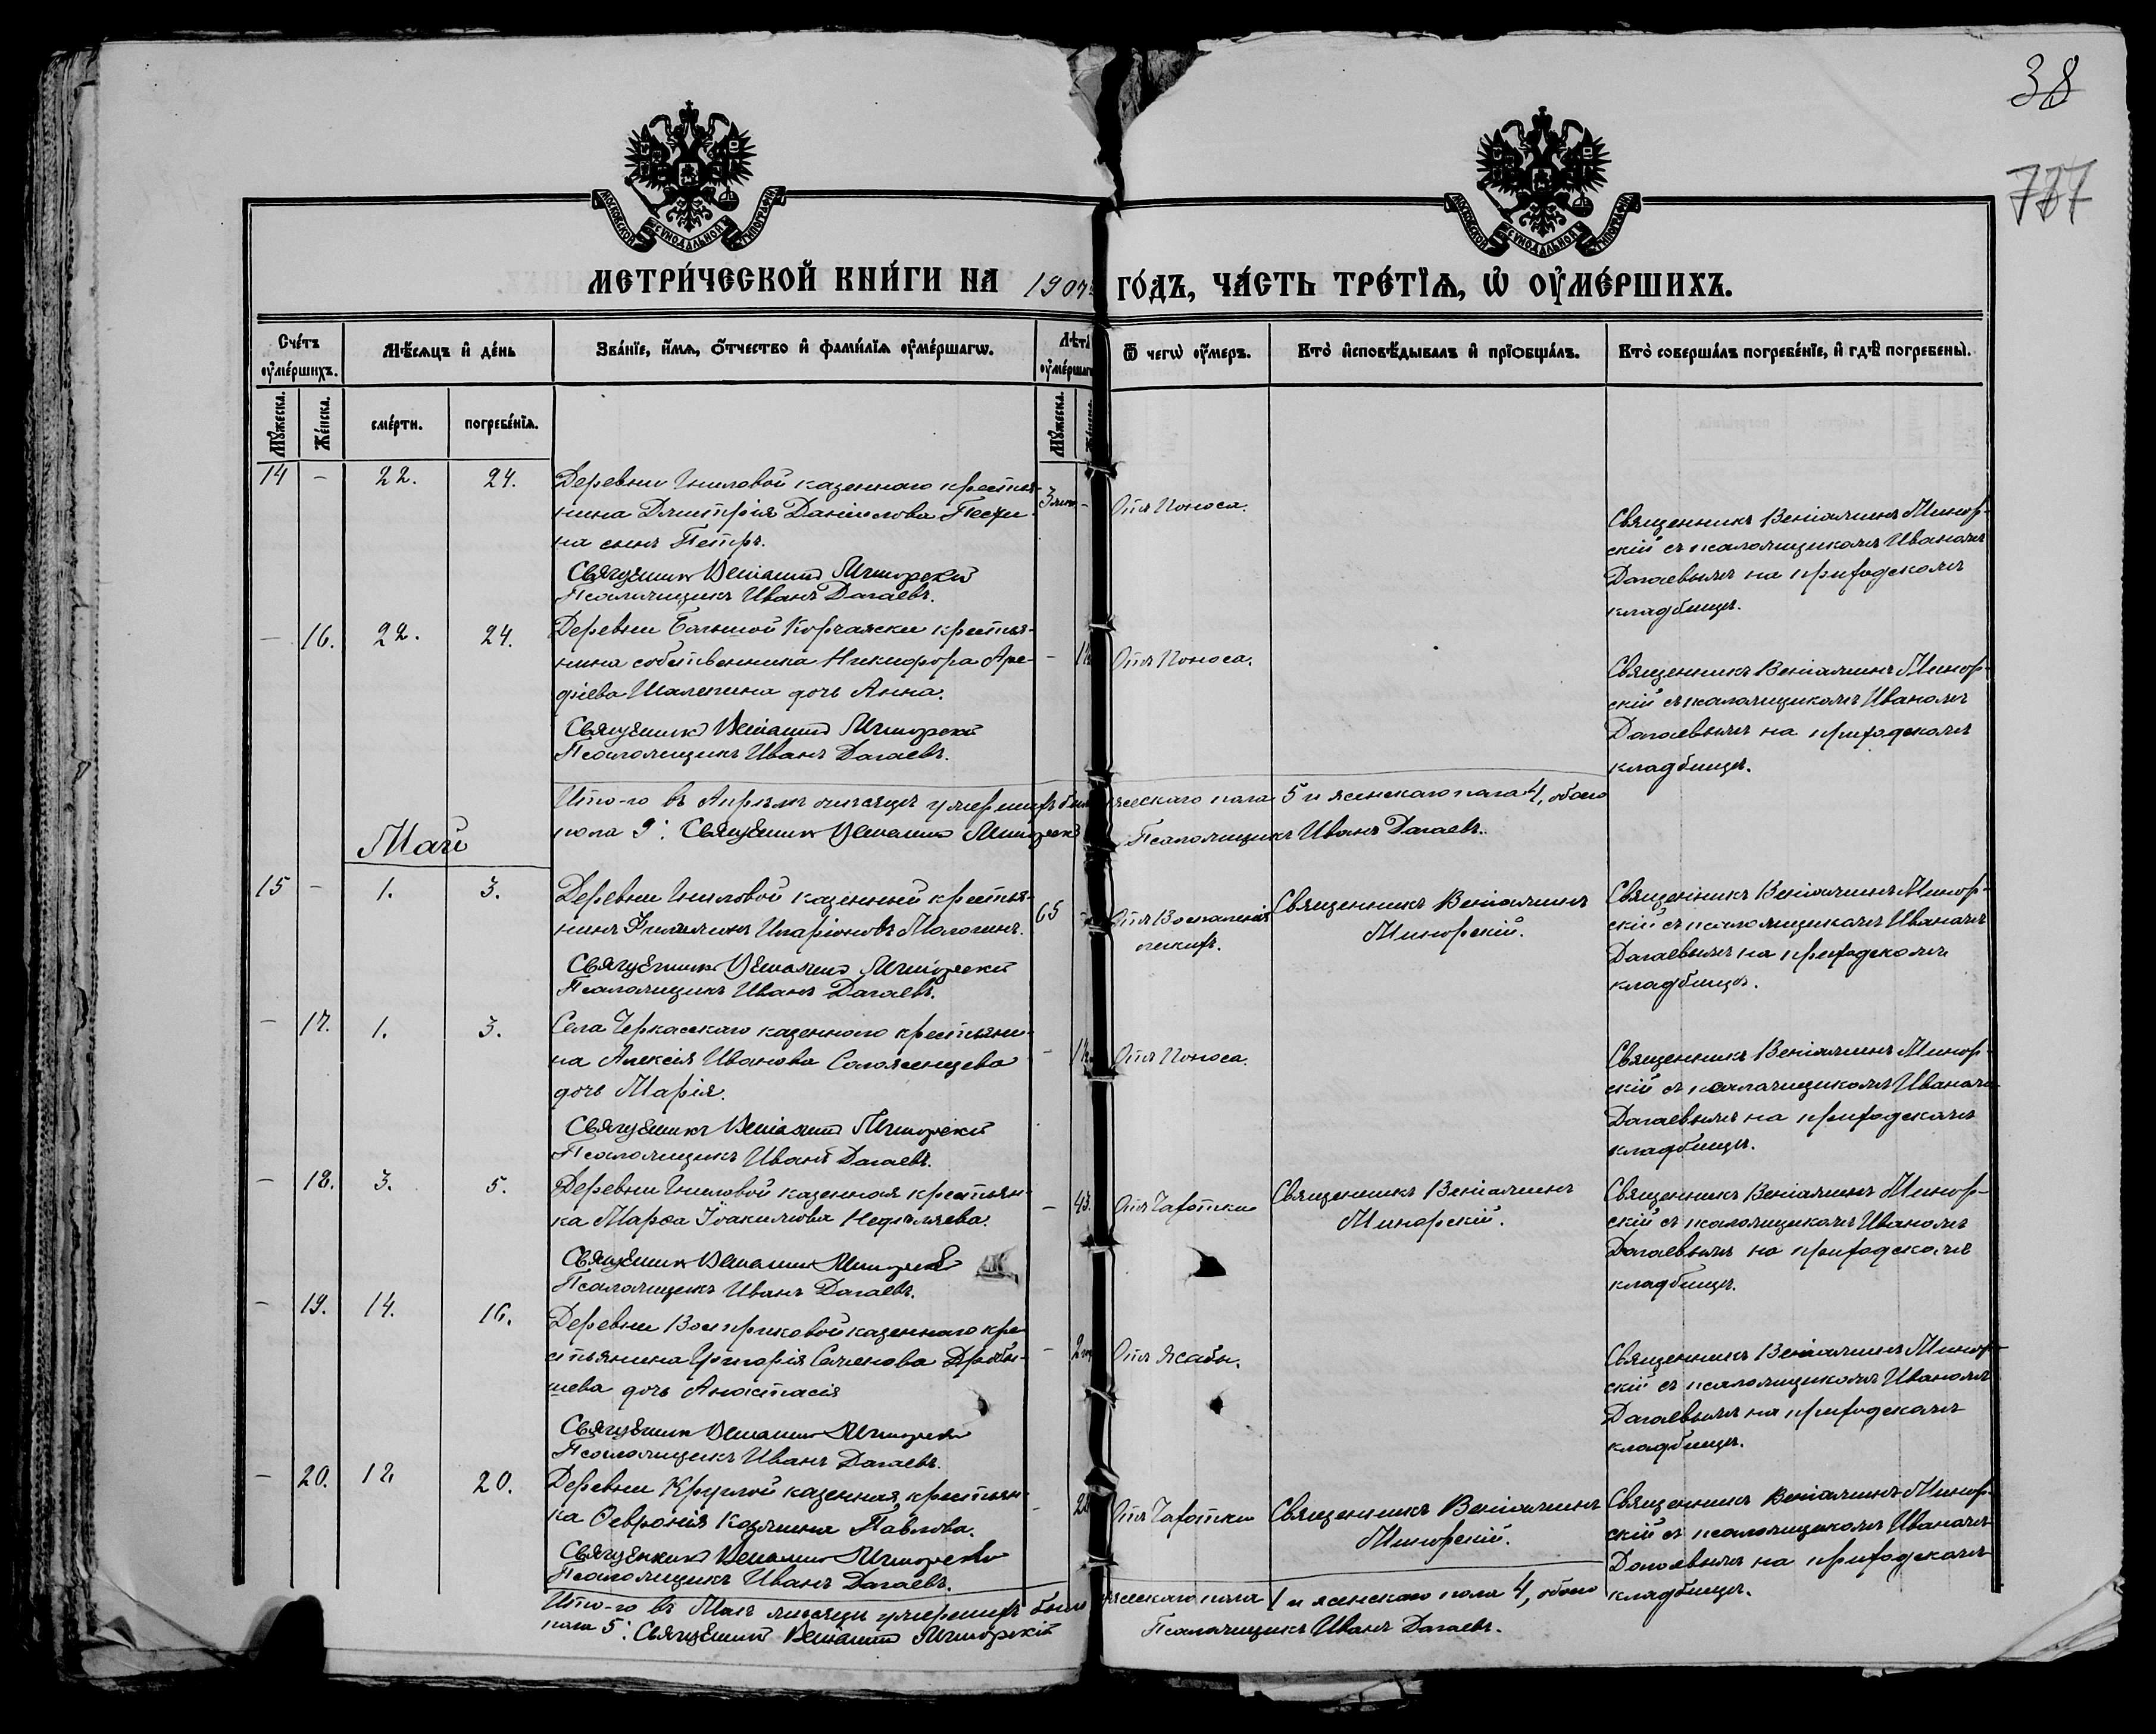 38
777
МОСКОВСКОЙ СѴНОДАЛЬНОЙ ТИПОГРАФІИ
МОСКОВСКОЙ СѴНОДАЛЬНОЙ ТИПОГРАФІИ
МЕТРИ́ЧЕСКОЙ КНИ́ГИ НА 1907 ГО́ДЪ, ЧА́СТЬ ТРЕ́ТІѦ, Ѡ҆ ОУ҆МЕ́РШИХЪ.
Сче́тъ оу҆ме́ршихъ.
Мѣ́сѧцъ и҆ де́нь
Зва́нїе, и҆́мѧ, ѻ҆́тчество и҆ фами́лїѧ оу҆ме́ршагѡ.
Лѣ́та оу҆ме́ршагѡ
Ѿ чегѡ̀ оу҆́меръ.
Кто̀ и҆сповѣ́дывалъ и҆ прїѻбща́лъ.
Кто̀ соверша́лъ погребе́нїе, и҆ гдѣ̀ погребены̀.
Мꙋ́жеска.
Же́нска.
сме́рти.
погребе́нїѧ.
Мꙋ́жеска.
14 - 22. 24. Деревни Гниловой казеннаго крестья-
нина Димитрія Даніилова Пести-
на сынъ Петръ.
Священникъ Веніаминъ Минорскій
Псаломщикъ Иванъ Дагаевъ.
Отъ Поноса.
Священникъ Веніаминъ Минор-
скій съ псаломщикомъ Иваномъ
Дагаевымъ на приходскомъ
кладбищѣ.
- 16. 22. 24. Деревни Большой Корчажки крестья-
нина собственника Никифора Аре-
фіева Шалепина дочь Анна.
Священникъ Веніаминъ Минорскій
Псаломщикъ Иванъ Дагаевъ.
Отъ Поноса.
Священникъ Веніаминъ Минор-
скій съ псаломщикомъ Иваномъ
Дагаевымъ на приходскомъ
кладбищѣ.
Ито-го въ Апрѣлѣ мѣсяцѣ умершихъ было мужескаго пола 5 и женскаго пола 4, обоего
пола 9. Священникъ Веніаминъ Минорскій Псаломщикъ Иванъ Дагаевъ.
Май
15 - 1. 3. Деревни Гниловой казенный крестья-
нинъ Филимонъ Иларіоновъ Мологинъ.
Священникъ Веніаминъ Минорскій
Псаломщикъ Иванъ Дагаевъ.
65 - Отъ Воспаленія
кишекъ.
Священникъ Веніаминъ
Минорскій.
Священникъ Веніаминъ Минор-
скій съ псаломщикомъ Иваномъ
Дагаевымъ на приходскомъ
кладбищѣ.
- 17. 1. 3. Села Черкасскаго казеннаго крестьяни-
на Алексія Иванова Соложенцева
дочь Марія.
Священникъ Веніаминъ Минорскій
Псаломщикъ Иванъ Дагаевъ.
Отъ Поноса.
Священникъ Веніаминъ Минор-
скій съ псаломщикомъ Иваномъ
Дагаевымъ на приходскомъ
кладбищѣ.
- 18. 3. 5. Деревни Гниловой казенная крестьян-
ка Марѳа Іоакимова Недѣляева.
Священникъ Веніаминъ Минорскій
Псаломщикъ Иванъ Дагаевъ.
- 43. Отъ Чахотки
Священникъ Веніаминъ
Минорскій.
Священникъ Веніаминъ Минор-
скій съ псаломщикомъ Иваномъ
Дагаевымъ на приходскомъ
кладбищѣ.
- 19. 14. 16. Деревни Вострикововой казеннаго кре-
стьянина Григорія Семенова Дробы-
шева дочь Анастасія
Священникъ Веніаминъ Минорскій
Псаломщикъ Иванъ Дагаевъ.
Отъ Жабы.
Священникъ Веніаминъ Минор-
скій съ псаломщикомъ Иваномъ
Дагаевымъ на приходскомъ
кладбищѣ.
- 20. 18. 20. Деревни Круглой казенная крестьян-
ка Ѳевронія Козмина Павлова.
Священникъ Веніаминъ Минорскій
Псаломщикъ Иванъ Дагаевъ.
Отъ Чахотки
Священникъ Веніаминъ
Минорскій.
Священникъ Веніаминъ Минор-
скій съ псаломщикомъ Иваномъ
Дагаевымъ на приходскомъ
кладбищѣ.
Ито-го въ Маѣ мѣсяцѣ умершихъ было мужескаго пола 1 и женскаго пола 4, обоего
пола 5. Священникъ Веніаминъ Минорскій Псаломщикъ Иванъ Дагаевъ.